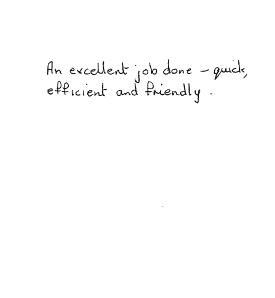 An excellent job done – quick,
efficient and friendly .